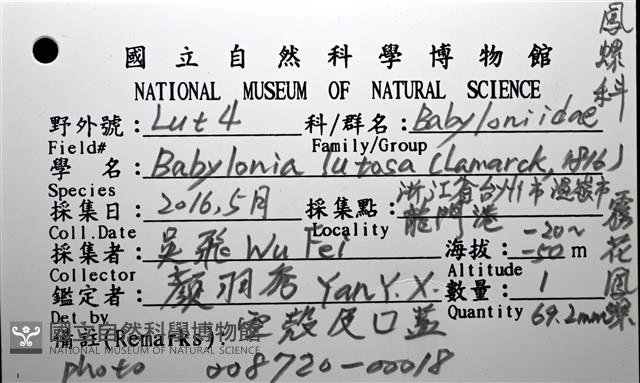 國立自然科學博物館
NATIONAL MUSEUM OF NATURAL SCIENCE
鳳螺科
野外號：Lut 4 科/群名：Babyloniidae
Field# Family/Group
學 名：Babylonia lutosa (Lamarck, 1816)
Species
採集日：2016,5月 採集點：浙江省台州市溫嶺市
龍門港
Coll.Date Locality
採集者：吳飛 Wu Fei 海拔：-20~
-50 m
Collector Altitude
鑑定者：顏羽秀 Yan Y.X. 數量：1
Det.by Quantity 69.2mm
霧花鳳螺
備註(Remarks)：空殼及口蓋
國立自然科學博物館
NATIONAL MUSEUM OF NATURAL SCIENCE
photo 008720-00018